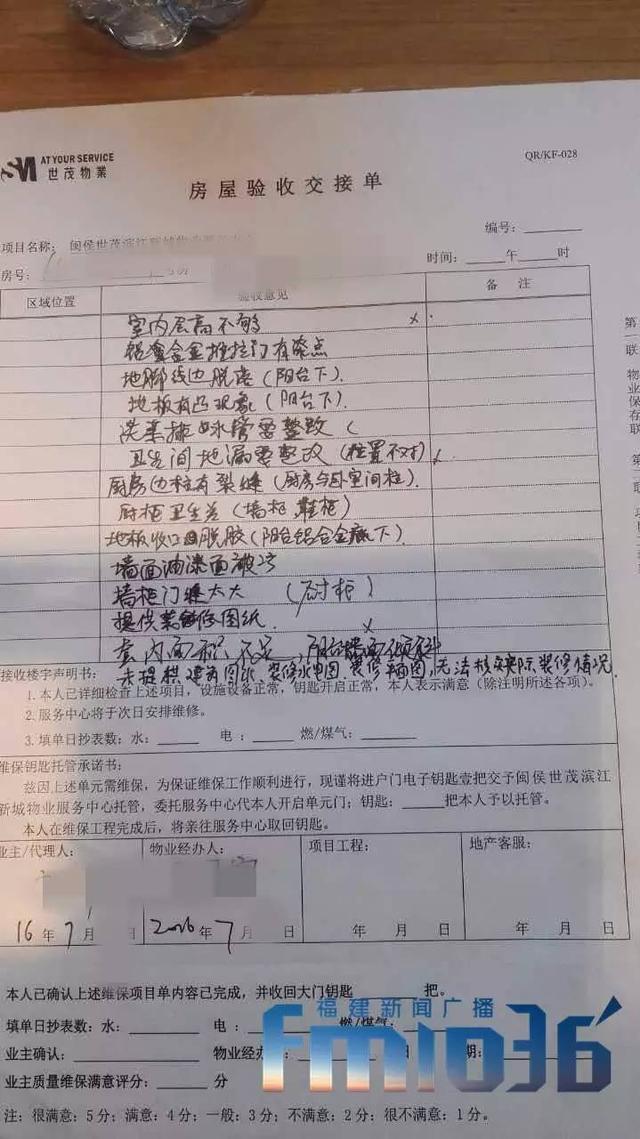 SM AT YOUR SERVICE
世茂物業
QR/KF-028
房屋验收交接单
编号：
项目名称：闽侯世茂滨江新城
时间：____午____时
房号：
区域位置 验收意见 备 注
室内层高不够 x
铝合金推拉门有
地脚线边脱落（阳台下）.
地板有凸现象（阳台下）.
洗菜排水管需整改（
卫生间地漏要整改（位置不对）x
厨房边柱有裂缝（厨房与卧室间柱）.
厨柜卫生差（墙柜，鞋柜）
地板收口脱胶（阳台铝合金底下）.
墙面油漆面破
墙柜门缝太大 （厨柜）
提供装修图纸. x
室内面积不足，阳台墙面倾斜
未提供建筑图纸，装修水电图，装修图，无法核实实际装修情况.
接收楼宇声明书：
1. 本人已详细检查上述项目，设施设备正常，钥匙开启正常，本人表示满意（除注明所述各项）。
2.服务中心将于次日安排维修。
3. 填单日抄表数：水：____ 电：____ 燃/煤气：____
维保钥匙托管承诺书：
兹因上述单元需维保，为保证维保工作顺利进行，现谨将进户门电子钥匙壹把交予闽侯世茂滨江
新城物业服务中心托管，委托服务中心代本人开启单元门；钥匙：____把本人予以托管。
本人在维保工程完成后，将亲往服务中心取回钥匙。
业主/代理人： 物业经办人： 项目工程： 地产客服：
16年7月 日 2016年7月 日 年 月 日 年 月 日
本人已确认上述维保项目单内容已完成，并收回大门钥匙 把。
填单日抄表数：水：____ 电：____ 燃/煤气：
业主确认：____ 物业经办 日 期：
业主质量维保满意评分：____分
注：很满意：5分；满意：4分；一般：3分；不满意：2分；很不满意：1分。
第一联 物业保存联 第
福建新闻广播
fm1036